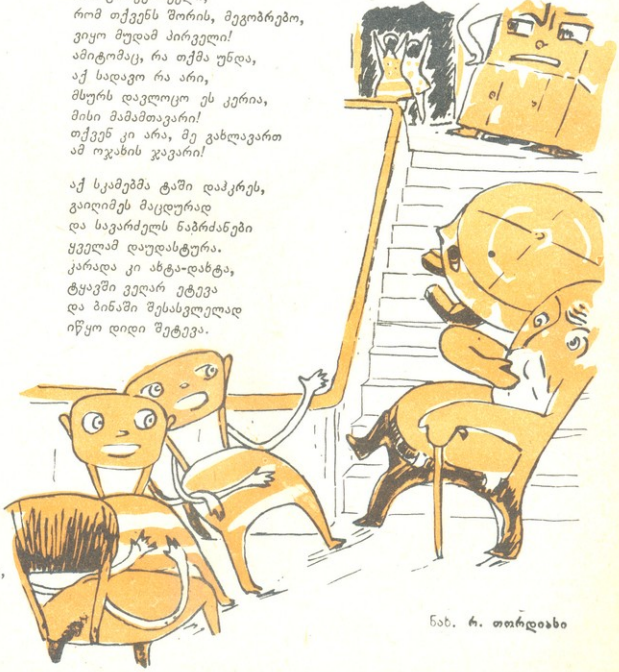 რომ თქვენს შორის, მეგობრებო,
ვიყო მუდამ პირველი!
ამიტომაც, რა თქმა უნდა,
აქ სადავო რა არი,
მსურს დავლოცო ეს კერია,
მისი მამამთავარი!
თქვენ კი არა, მე გახლავართ
ამ ოჯახის ჯავარი!
აქ სკამებმა ტაში დაჰკრეს,
გაიღიმეს მაცდურად
და სავარძელს ნაბრძანები
ყველამ დაუდასტურა.
კარადა კი ახტა-დახტა,
ტყავში ვეღარ ეტევა
და ბინაში შესასვლელად
იწყო დიდი შეტევა.
ნახ. რ. თორდიასი